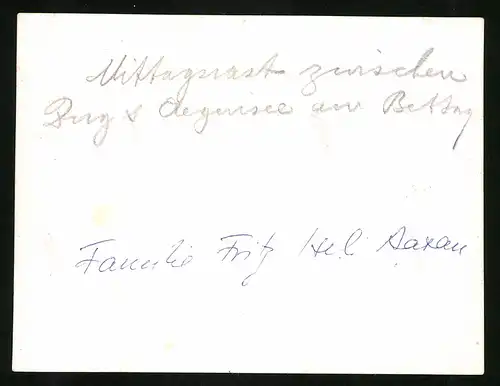 Mittagsrast zwischen
Zug & Aegerisee am Bettag
Familie Fritz